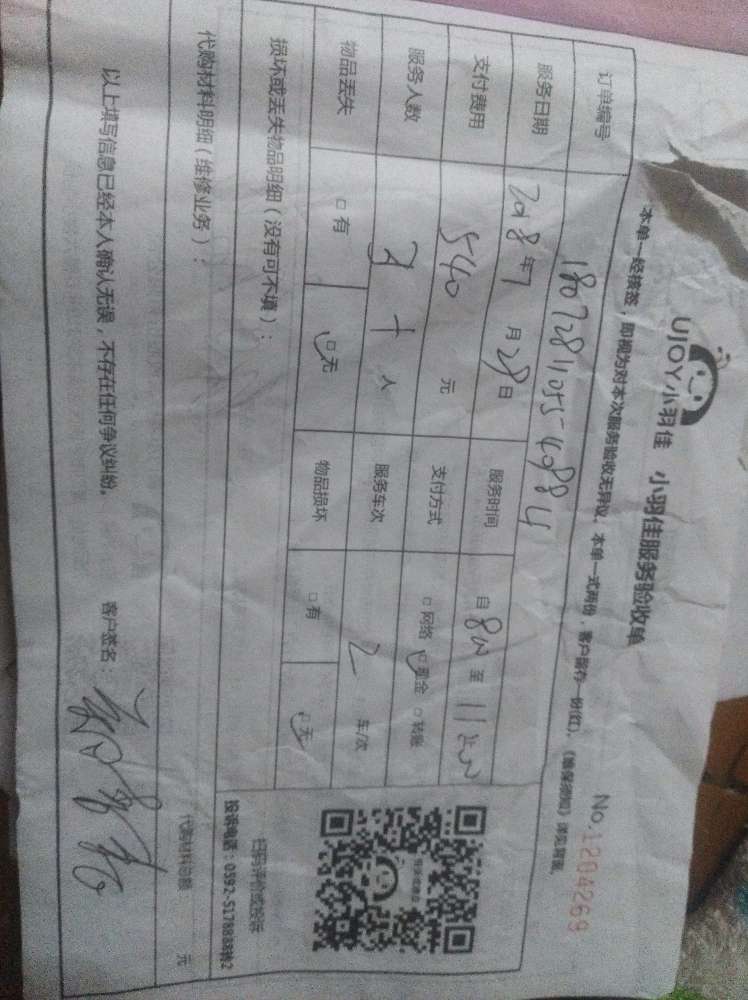 UJOY小羽佳 小羽佳服务验收单
No:1204269
本单一经核签，即视为对本次服务验收无异议。本单一式两份，客户留存一份(红)，《维保须知》详见背面。
订单编号
服务日期 2018年7月28日 服务时间 自 8 至 11
支付费用 540 元 支付方式 □网络 □现金 □转账
服务人数 人 服务车次 2 车/次
物品丢失 □有 □无 物品损坏 □有 □无
扫码评价或投诉
投诉电话：0592-5178888转2
损坏或丢失物品明细（没有可不填）：
代购材料明细（维修业务）： 代购材料总额 元
以上填写信息已经本人确认无误，不存在任何争议纠纷。 客户签名：